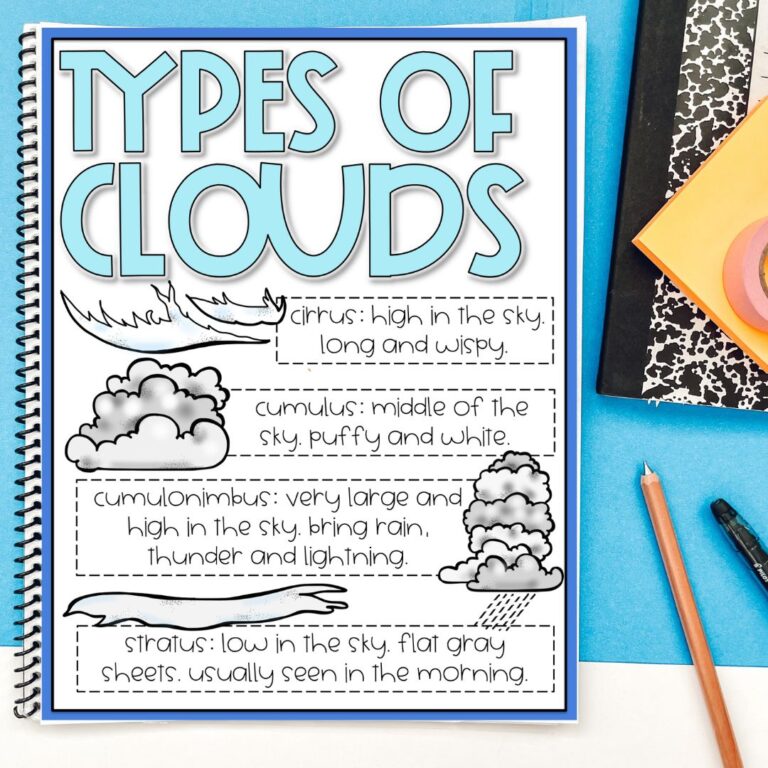 TYPES OF
CLOUDS
cirrus: high in the sky.
long and wispy.
cumulus: middle of the
sky. puffy and white.
cumulonimbus: very large and
high in the sky. bring rain,
thunder and lightning.
stratus: low in the sky. flat gray
sheets. usually seen in the morning.